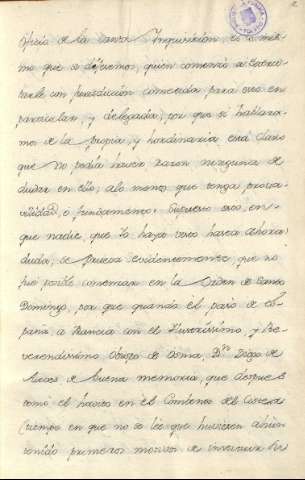 oficio de la Santa Inquisicion, es lo mes-
mo que si dijesemos, quien comenzó a exerci-
tarle con jurisdicción cometida para esto en
particular, y delegada, por que si hablara-
mos de la propia, y hordinaria está claro
que no podia haver razon ninguna de
dudar en ello, alo menos que tenga provav-
ilidad, o fundamento. Supuesto esto, en
que nadie, que lo haya visto hasta ahora
duda, se prueva evidentemente que no
fué posible comenzar en la Orden de Santo
Domingo, por que quando el pasó de Es-
paña a Francia con el Ilustrissimo, y Re-
verendissimo Obispo de Osma, Dⁿ Diego de
de buena memoria, que despues
tomó el havito en el Combento del Cistel
(tiempo en que no se lee que huviesen aun
tenido primeros motivos de